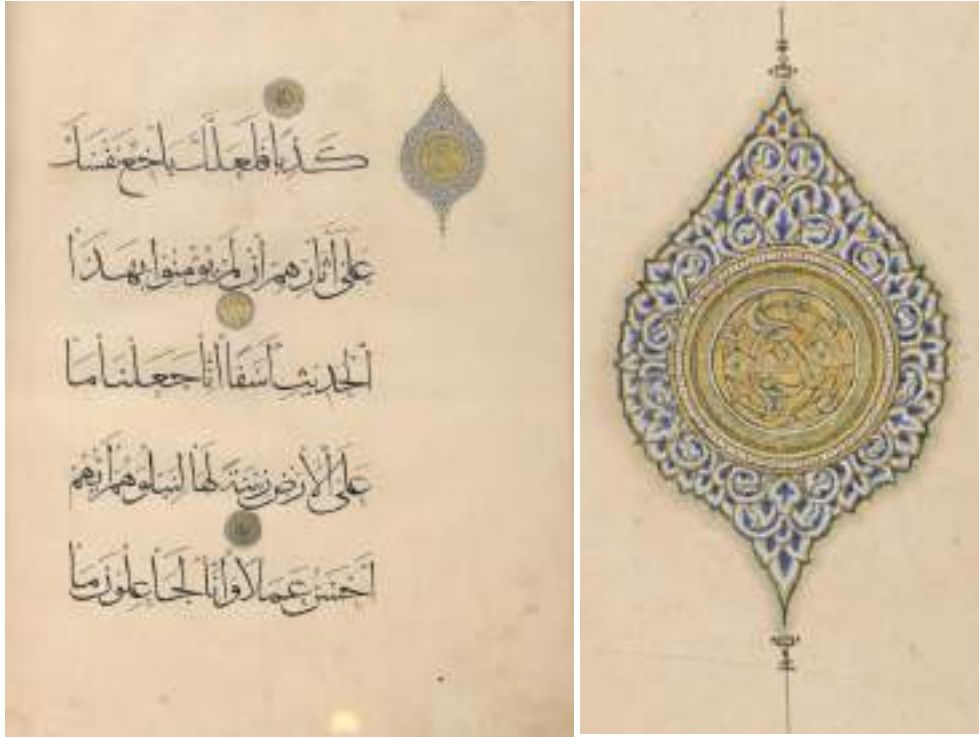 كَذِبًا فَلَعَلَّكَ بَاخِعٌ نَفْسَكَ
عَلَى آثَارِهِمْ إِنْ لَمْ يُؤْمِنُوا بِهَذَا
الْحَدِيثِ أَسَفًا إِنَّا جَعَلْنَا مَا
عَلَى الْأَرْضِ زِينَةً لَهَا لِنَبْلُوَهُمْ أَيُّهُمْ
أَحْسَنُ عَمَلًا وَإِنَّا لَجَاعِلُونَ مَا